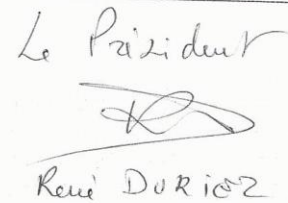 Le Président
René DURIEZ